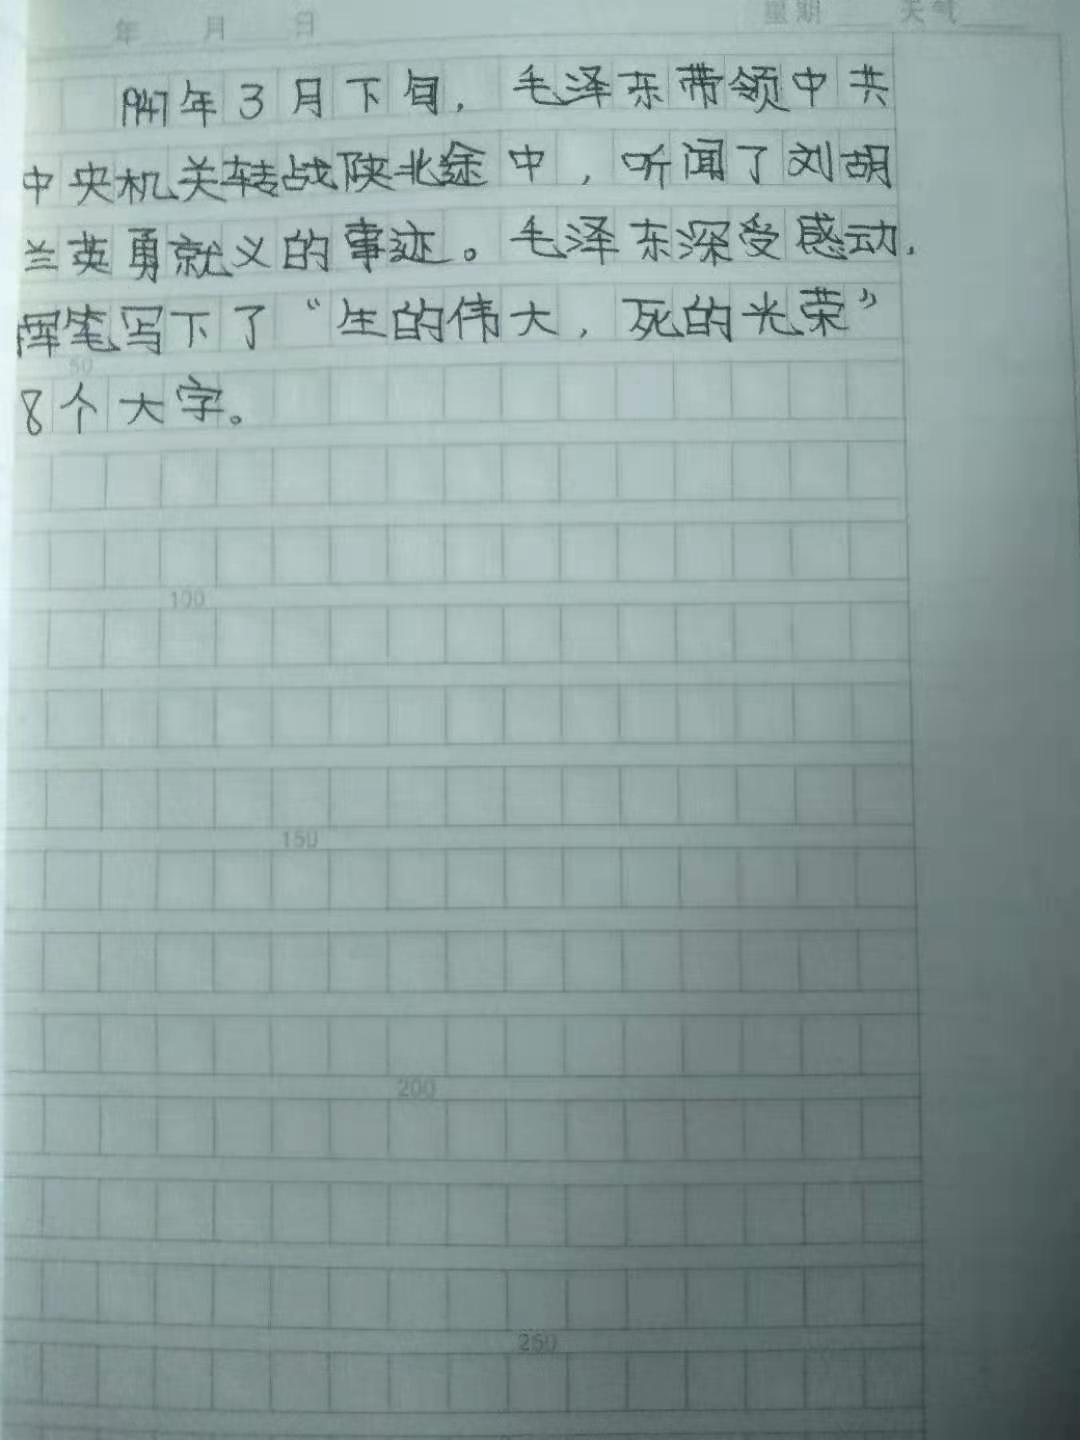 年 月 日 星期 天气
1947年3月下旬，毛泽东带领中共
中央机关转战陕北途中，听闻了刘胡
兰英勇就义的事迹。毛泽东深受感动，
挥笔写下了“生的伟大，死的光荣”
50
8个大字。
100
150
200
250